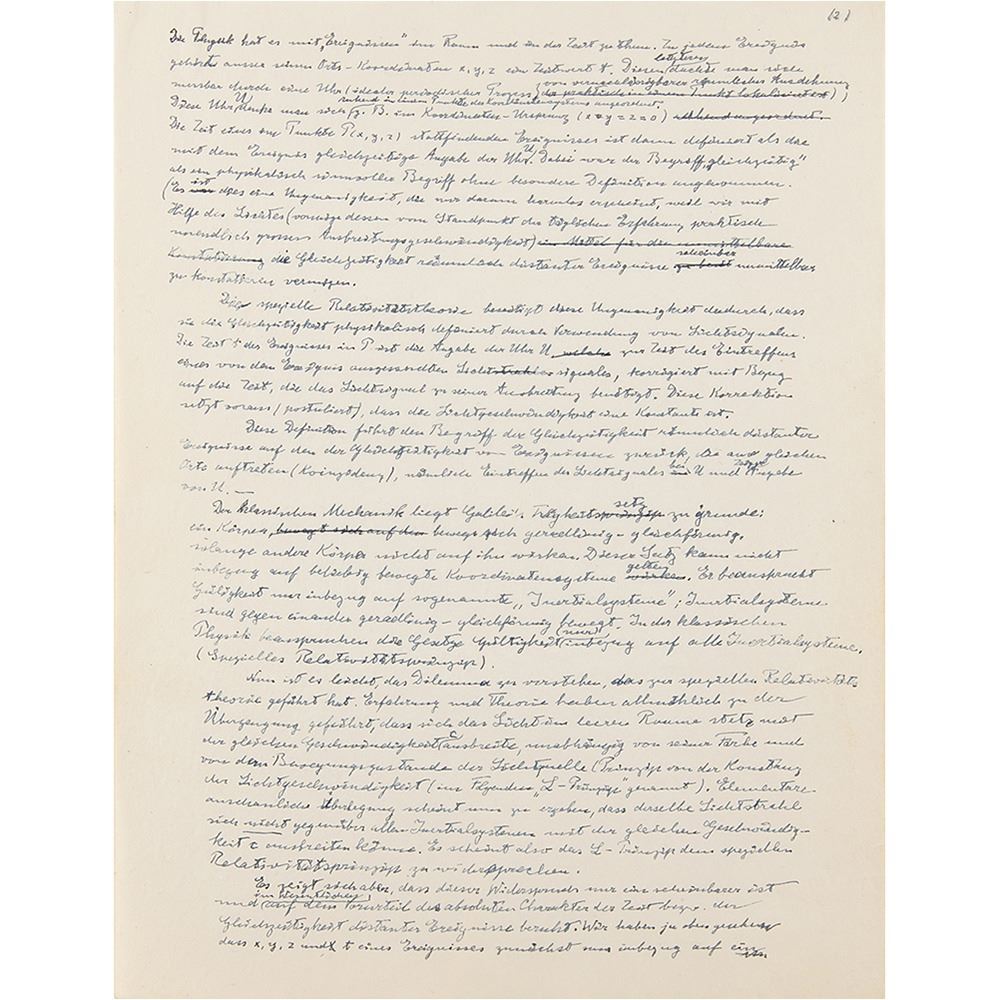 (2)
Die Physik hat es mit „Ereignissen" im Raum und in der Zeit zu thun. Zu jedem Ereignis
letzteren
gehört ausser seinen Orts-Koordinaten x, y, z ein Zeitwert t. Diesen dachte man sich
messbar durch eine Uhr (idealer periodischer Prozess von vernachlässigbarer räumlicher Ausdehnung
der praktisch in einem Punkt lokalisiert ist)
ruhend in einem Punkte des Koordinatensystems angeordnet.
Diese Uhr U denke man sich z. B. im Koordinaten-Ursprung (x=y=z=0) ruhend angeordnet.
Die Zeit eines am Punkte P(x, y, z) stattfindenden Ereignisses ist dann definiert als die
mit dem Ereignis gleichzeitige Angabe der Uhr U. Dabei war der Begriff „gleichzeitig"
als ein physikalisch sinnvoller Begriff ohne besondere Definition angenommen.
(Es ist war dies eine Ungenauigkeit, die nur darum harmlos erscheint, weil wir mit
Hilfe des Lichtes (vermöge dessen vom Standpunkt der täglichen Erfahrung praktisch
unendlich grossen Ausbreitungsgeschwindigkeit) ein Mittel für die unmittelbare
scheinbar
Konstatierung die Gleichzeitigkeit räumlich distanter Ereignisse unmittelbar
zu konstatieren vermögen.
Die spezielle Relativitätstheorie beseitigt diese Ungenauigkeit dadurch, dass
sie die Gleichzeitigkeit physikalisch definiert durch Verwendung von Lichtsignalen.
Die Zeit t des Ereignisses in P ist die Angabe der Uhr U, welche zur Zeit des Eintreffens
eines von dem Ereignis ausgesandten Lichtstrahles signales, korrigiert mit Bezug
auf die Zeit, die das Lichtsignal zu seiner Ausbreitung benötigt. Diese Korrektion
setzt voraus (postuliert), dass die Lichtgeschwindigkeit eine Konstante ist.
Diese Definition führt den Begriff der Gleichzeitigkeit räumlich distanter
Ereignisse auf den der Gleichzeitigkeit von Ereignissen zurück, die am gleichen
Orte auftreten (Koinzidenz), nämlich Eintreffen des Lichtsignales bei in U und Zeiger Angabe
von U. —
satz
Der klassischen Mechanik liegt Galilei's Trägheitsprinzip zu grunde:
ein Körper, bewegt sich auf den bewegt sich geradlinig-gleichförmig,
solange andere Körper nicht auf ihn wirken. Dieser Satz kann nicht
gelten
inbezug auf beliebig bewegte Koordinatensysteme wirken. Er beansprucht
Gültigkeit nur inbezug auf sogenannte „Inertialsysteme"; Inertialsysteme
sind gegen einander geradlinig-gleichförmig bewegt. In der klassischen
(nur)
Physik beanspruchen die Gesetze Gültigkeit inbezug auf alle Inertialsysteme.
(Spezielles Relativitätsprinzip).
Nun ist es leicht, das Dilemma zu verstehen, das zur speziellen Relativitäts
theorie geführt hat. Erfahrung und Theorie haben allmählich zu der
Überzeugung geführt, dass sich das Licht im leeren Raume stets mit
der gleichen Geschwindigkeit c ausbreite, unabhängig von seiner Farbe und
von dem Bewegungszustande der Lichtquelle (Prinzip von der Konstanz
der Lichtgeschwindigkeit (im Folgenden „L-Prinzip" genannt). Elementare
anschauliche Überlegung scheint nun zu ergeben, dass derselbe Lichtstrahl
sich nicht gegenüber allen Inertialsystemen mit der gleichen Geschwindig-
keit c ausbreiten könne. Es scheint also das L-Prinzip dem speziellen
Relativitätsprinzip zu widersprechen.
Es zeigt sich aber, dass dieser Widerspruch nur ein scheinbarer ist
im Wesentlichen
und auf dem Vorurteil des absoluten Charakter der Zeit bezw. der
Gleichzeitigkeit distanter Ereignisse beruht. Wir haben ja oben gesehen
dass x, y, z und t eines Ereignisses zunächst nur inbezug auf ein